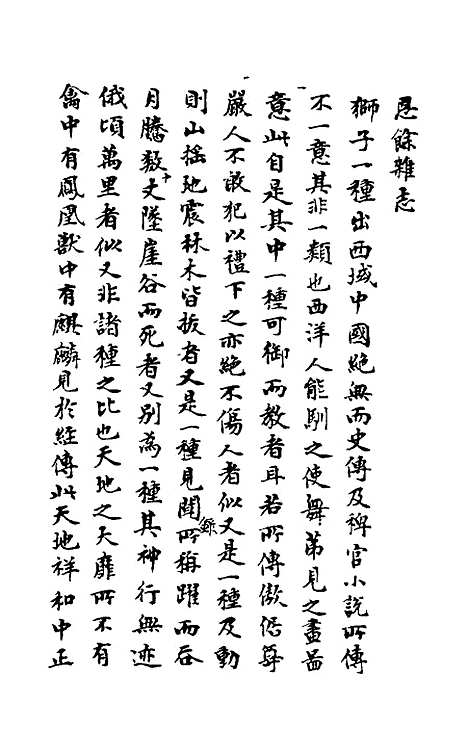 恩餘雜志
獅子一種出西域中國絕無而史傳及稗官小說所傳
不一意其非一類也西洋人能馴之使舞苐見之畫啚
意此自是其中一種可御而教者耳若所傳傲倨尊
嚴人不敢犯以禮下之亦絕不傷人者似又是一種及動
則山搖地震林木皆拔者又是一種見聞錄所稱躍而吞
月騰數十丈墜崖谷而死者又別為一種其神行無迹
俄頃萬里者似又非諸種之比也天地之大靡所不有
禽中有鳳凰獸中有麒麟見於經傳此天地祥和中正